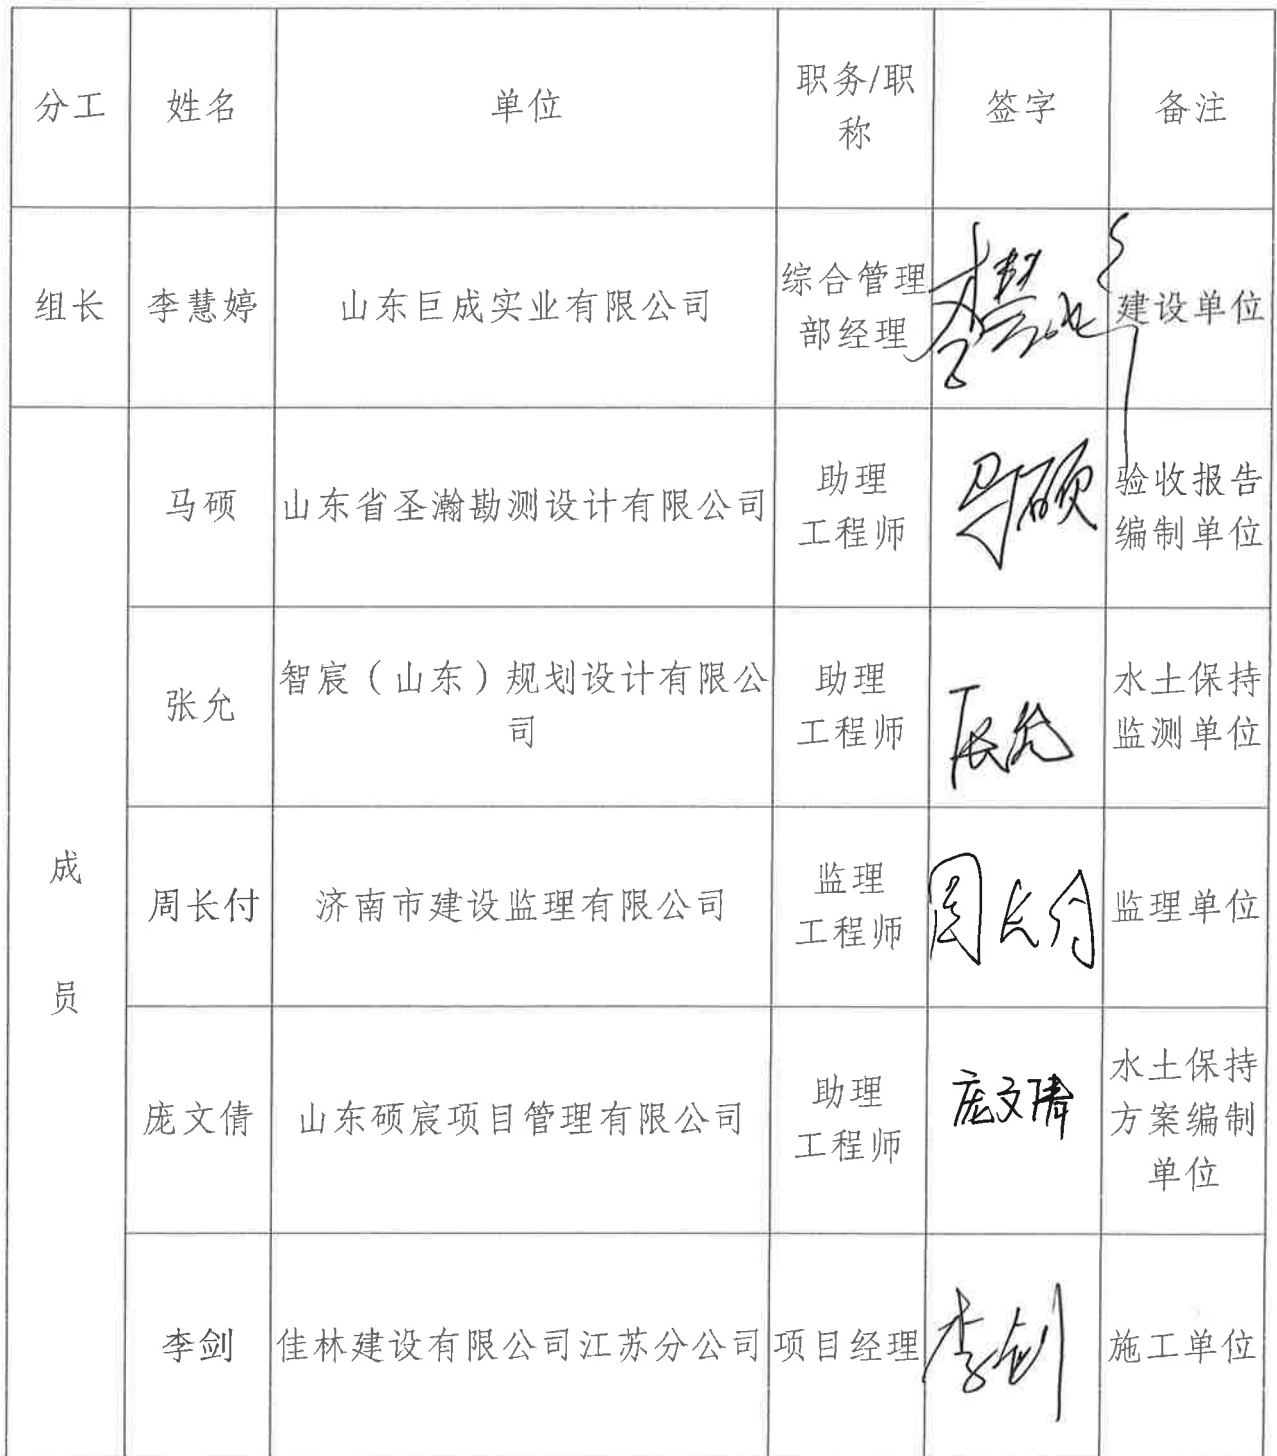 分工 姓名 单位 职务/职称 签字 备注
组长 李慧婷 山东巨成实业有限公司 综合管理部经理 李慧婷 建设单位
成员
马硕 山东省圣瀚勘测设计有限公司 助理工程师 马硕 验收报告编制单位
张允 智宸（山东）规划设计有限公司 助理工程师 张允 水土保持监测单位
周长付 济南市建设监理有限公司 监理工程师 周长付 监理单位
庞文倩 山东硕宸项目管理有限公司 助理工程师 庞文倩 水土保持方案编制单位
李剑 佳林建设有限公司江苏分公司 项目经理 李剑 施工单位